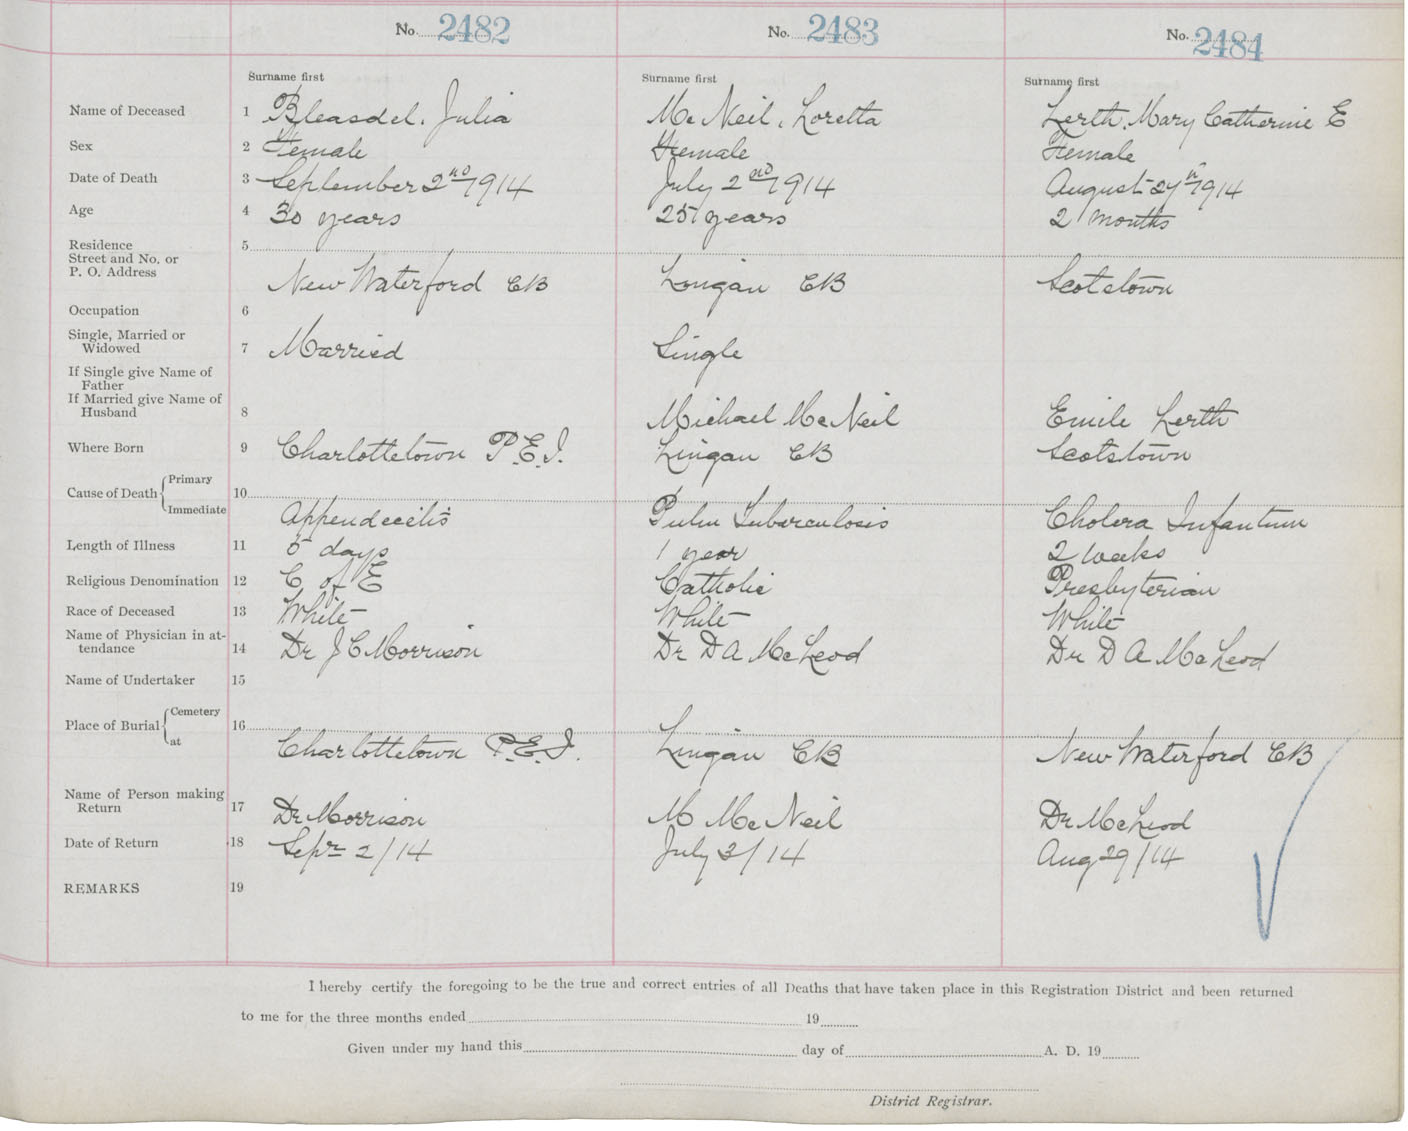 No. 2482 No. 2483 No. 2484
Surname first Surname first Surname first
Name of Deceased 1 Bleasdel, Julia Mc Neil, Loretta Lerth, Mary Catherine E
Sex 2 Female Female Female
Date of Death 3 September 2nd 1914 July 2nd 1914 August 27th 1914
Age 4 30 years 25 years 2 months
Residence 5
Street and No. or
P. O. Address New Waterford CB Longan CB Scotstown
Occupation 6
Single, Married or
Widowed 7 Married Single
If Single give Name of
Father
If Married give Name of
Husband 8 Michael McNeil Emile Lerth
Where Born 9 Charlottetown P.E.I. Lingan CB Scotstown
Cause of Death Primary 10
Immediate Appendecitis Pulm Tuberculosis Cholera Infantum
Length of Illness 11 5 days 1 year 2 weeks
Religious Denomination 12 C of E Catholic Presbyterian
Race of Deceased 13 White White White
Name of Physician in at-
tendance 14 Dr J C Morrison Dr D A McLeod Dr D A McLeod
Name of Undertaker 15
Place of Burial Cemetery 16
at Charlottetown P.E.I. Lingan CB New Waterford CB
Name of Person making
Return 17 Dr Morrison M McNeil Dr McLeod
Date of Return 18 Sepr 2/14 July 3/14 Aug 29/14
REMARKS 19
I hereby certify the foregoing to be the true and correct entries of all Deaths that have taken place in this Registration District and been returned
to me for the three months ended 19
Given under my hand this day of A. D. 19
District Registrar.